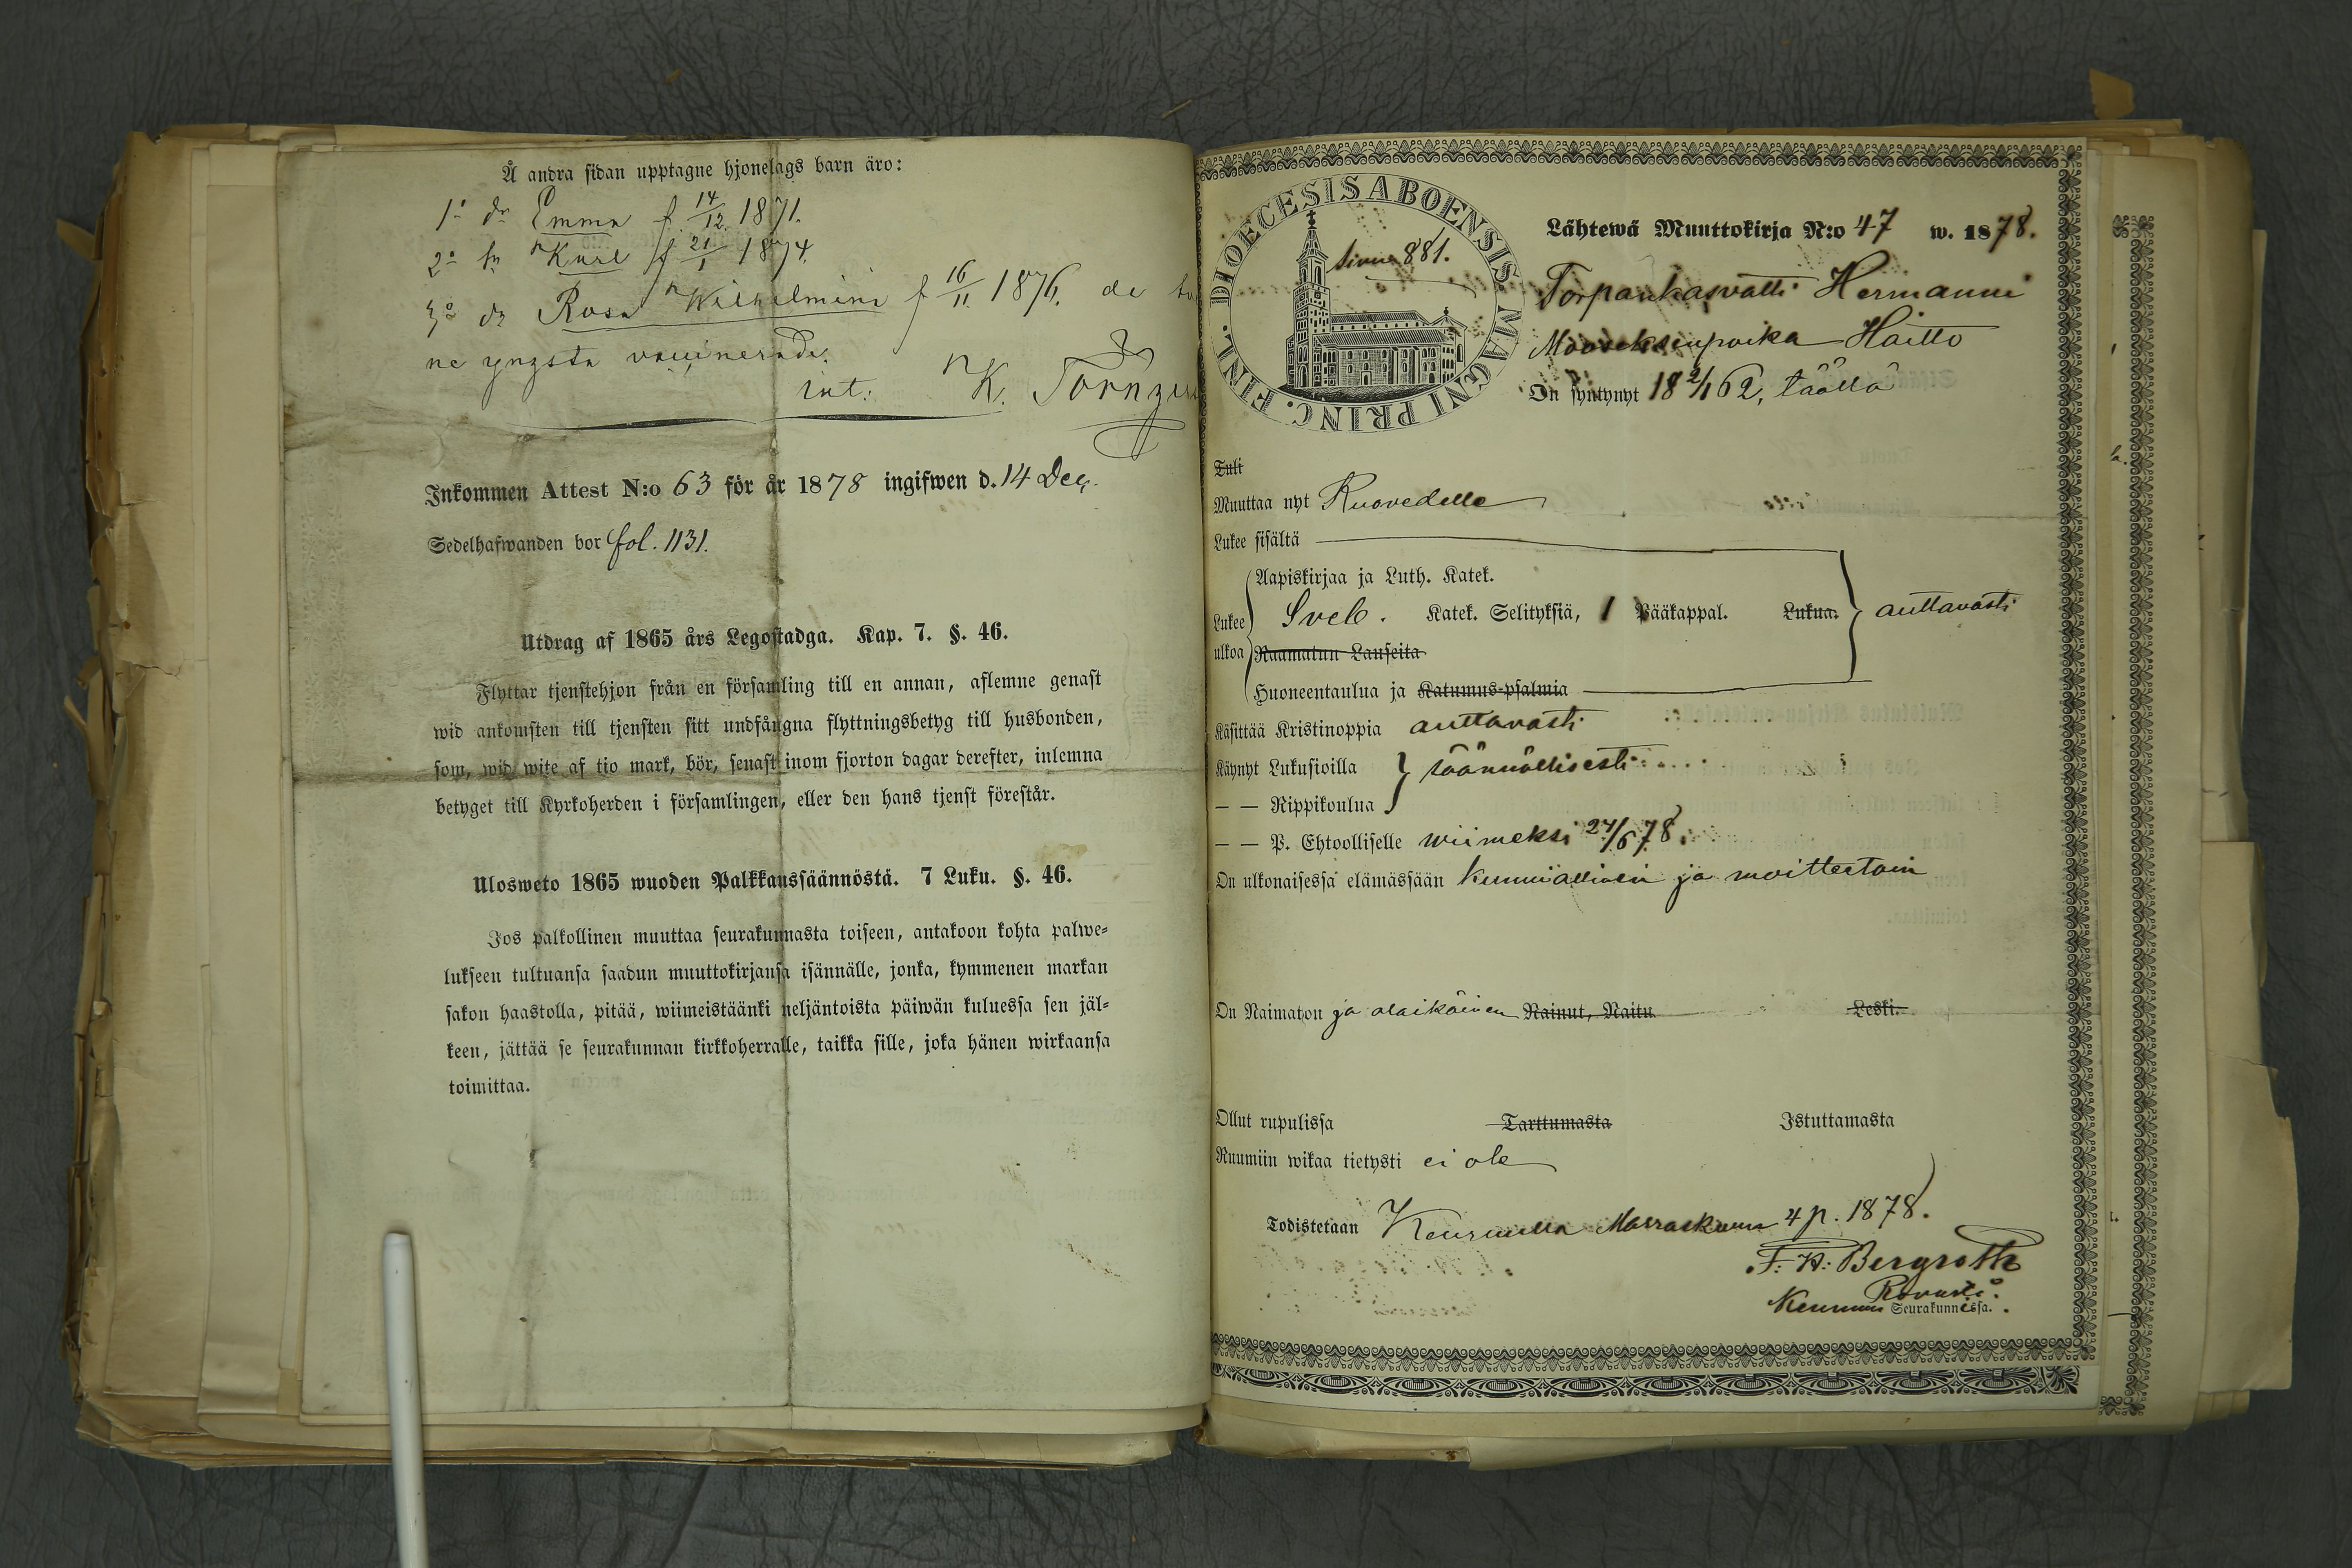 Å andra sidan upptagne hjonelags barn äro:
1:o dr Emma f. 14/12 1871.
2:o sn Karl f 21/1 1874.
3:o dr Rosa Wilhelmina f 16/11 1876. de
ne yngsta vaccinerade.
int: K. Törn
Inkommen Attest N:o 63 för år 1878 ingifwen d. 14 Dec.
Sedelhafwanden bor fol. 1131.
Utdrag af 1865 års Legostadga. Kap. 7. §. 46.
Flyttar tjenstehjon från en församling till en annan, aflemne genast
wid ankomsten till tjensten sitt undfångna flyttningsbetyg till husbonden,
som, wid wite af tio mark, bör, senast inom fjorton dagar derefter, inlemna
betyget till Kyrkoherden i församlingen, eller den hans tjenst förestår.
Ulosweto 1865 wuoden Palkkaussäännöstä. 7 Luku. §. 46.
Jos palkollinen muuttaa seurakunnasta toiseen, antakoon kohta palwe-
lukseen tultuansa saadun muuttokirjansa isännälle, jonka, kymmenen markan
sakon haastolla, pitää, wiimeistäänki neljäntoista päiwän kuluessa sen jäl-
keen, jättää se seurakunnan kirkkoherralle, taikka sille, joka hänen wirkaansa
toimittaa.
DIOECESIS ABOENSIS. MAGNI PRINC. FINL.
sivu 881.
Lähtewä Muuttokirja N:o 47 w. 1878.
Torpankasvatti Hermanni
Mooseksenpoika Haitto
On syntynyt 18 2/1 62, täällä
Tuli
Muuttaa nyt Ruovedelle
Lukee sisältä
Aapiskirjaa ja Luth. Katek.
Lukee Sveb. Katek. Selityksiä, 1 Pääkappal. Lukua. auttavasti
ulkoa Raamatun Lauseita
Huoneentaulua ja Katumus-psalmia
Käsittää Kristinoppia auttavasti
Käynyt Lukusioilla säännöllisesti
— — Rippikoulua
— — P. Ehtoolliselle wiimeksi 24/6 78.
On ulkonaisessa elämässään kunniallinen ja moitteetoin
On Naimaton ja alaikäinen Nainut, Naitu Leski.
Ollut rupulissa Tarttumasta Istuttamasta
Ruumiin wikaa tietysti ei ole
Todistetaan Keuruulla Marraskuun 4 p. 1878.
F. H. Bergroth
Rovasti
Keuruun Seurakunnissa.